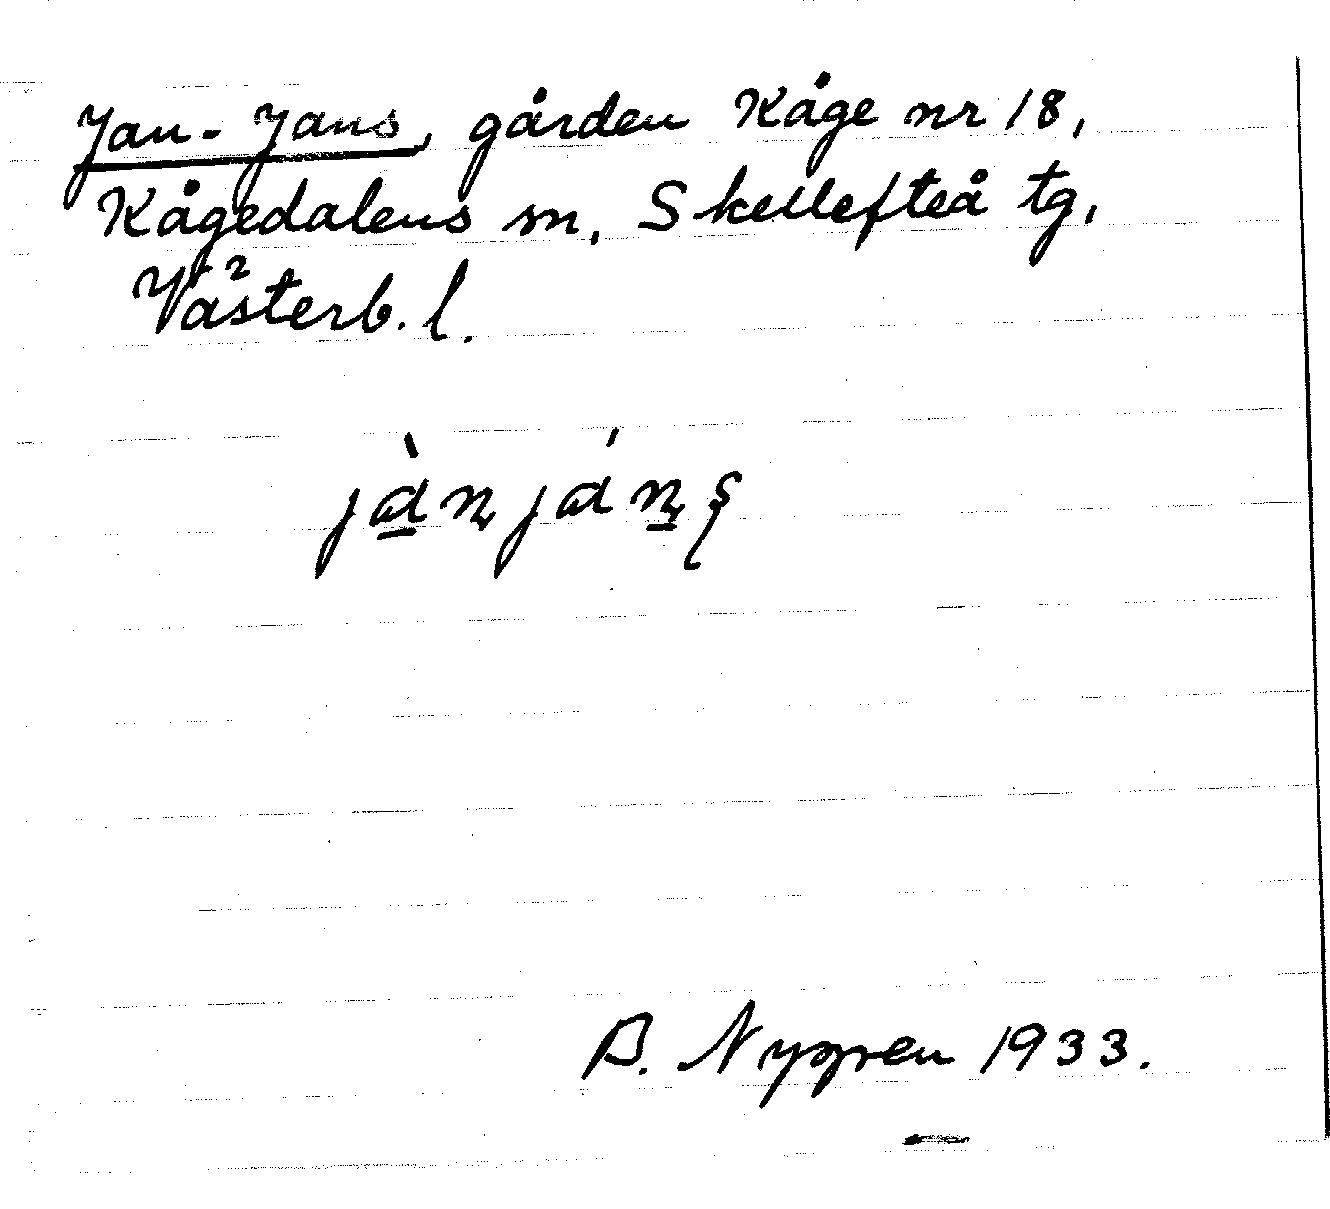 Jan-Jans, gården Kåge nr 18,
Kågedalens sn, Skellefteå tg,
Västerb. l.
jànjánş
B. Nygren 1933.